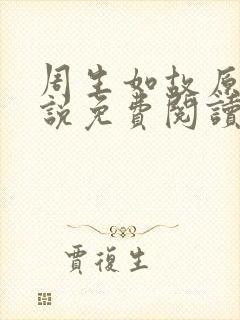 周生如故原
說免費閱讀
賈復生